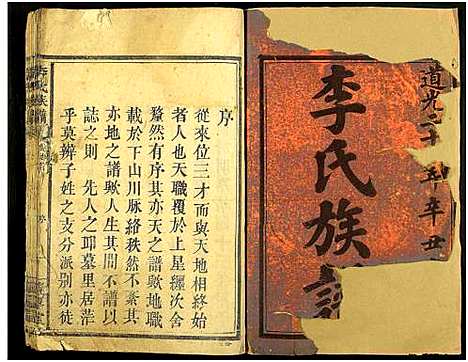 道光二十 年辛丑
李氏族譜
序
從來位三才而與天地相終始
者人也天職覆於上星纏次舍
釐然有序其亦天之譜歟地職
載於下山川脉絡秩然不紊其
亦地之譜歟人生其間不譜以
誌之則 先人之邱墓里居茫
乎莫辨子姓之支分派別亦徒